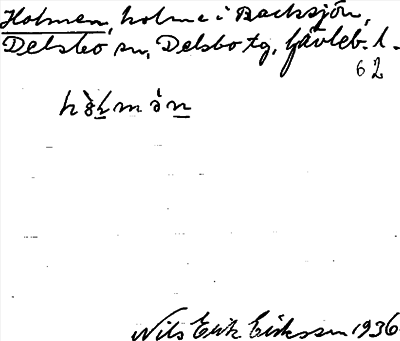 Holmen, holme i Backsjön,
Delsbo sn, Delsbo tg, Gävleb. l.
62
Nils Erik Eriksson 1936